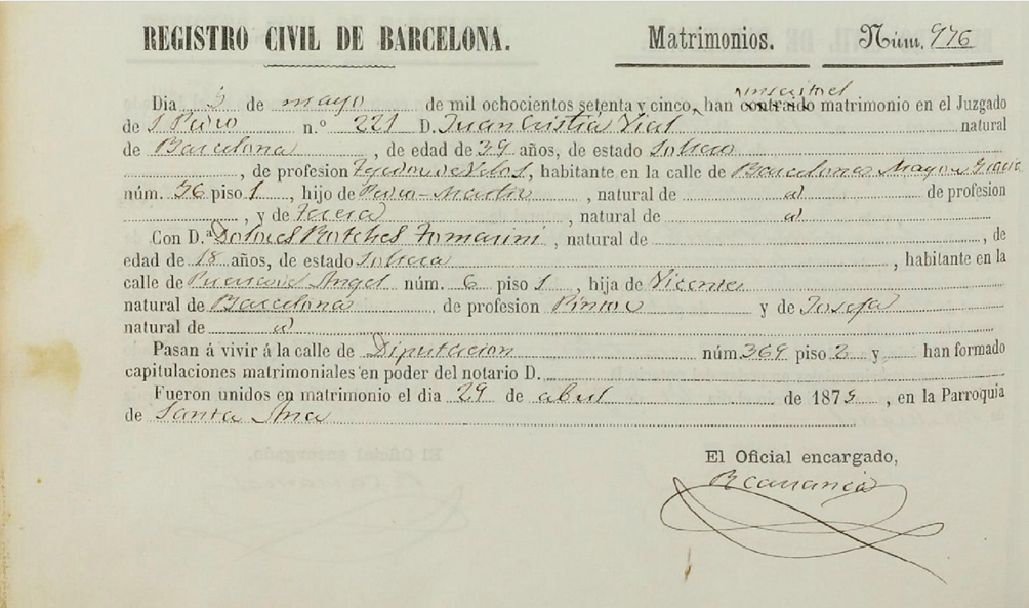 REGISTRO CIVIL DE BARCELONA. Matrimonios. Núm. 976
inscrito el
Dia 5 de mayo de mil ochocientos setenta y cinco, han contraido matrimonio en el Juzgado
de S Pedro n.º 221 D. Juan Cristiá Vial natural
de Barcelona, de edad de 39 años, de estado Soltero
, de profesion Tejedor de Velos, habitante en la calle de Barcelona Mayor Gracia
núm. 36 piso 1, hijo de Pedro-Martir, natural de id de profesion
, y de Teresa, natural de id
Con D.ª Dolores Fomasini, natural de , de
edad de 18 años, de estado Soltera, habitante en la
calle de Puerta del Angel núm. 6 piso 1, hija de Vicente
natural de Barcelona de profesion Pintor y de Josefa
natural de id
Pasan á vivir á la calle de Diputacion núm. 369 piso 2 y han formado
capitulaciones matrimoniales en poder del notario D.
Fueron unidos en matrimonio el dia 29 de abril de 1875, en la Parroquia
de Santa Ana
El Oficial encargado,